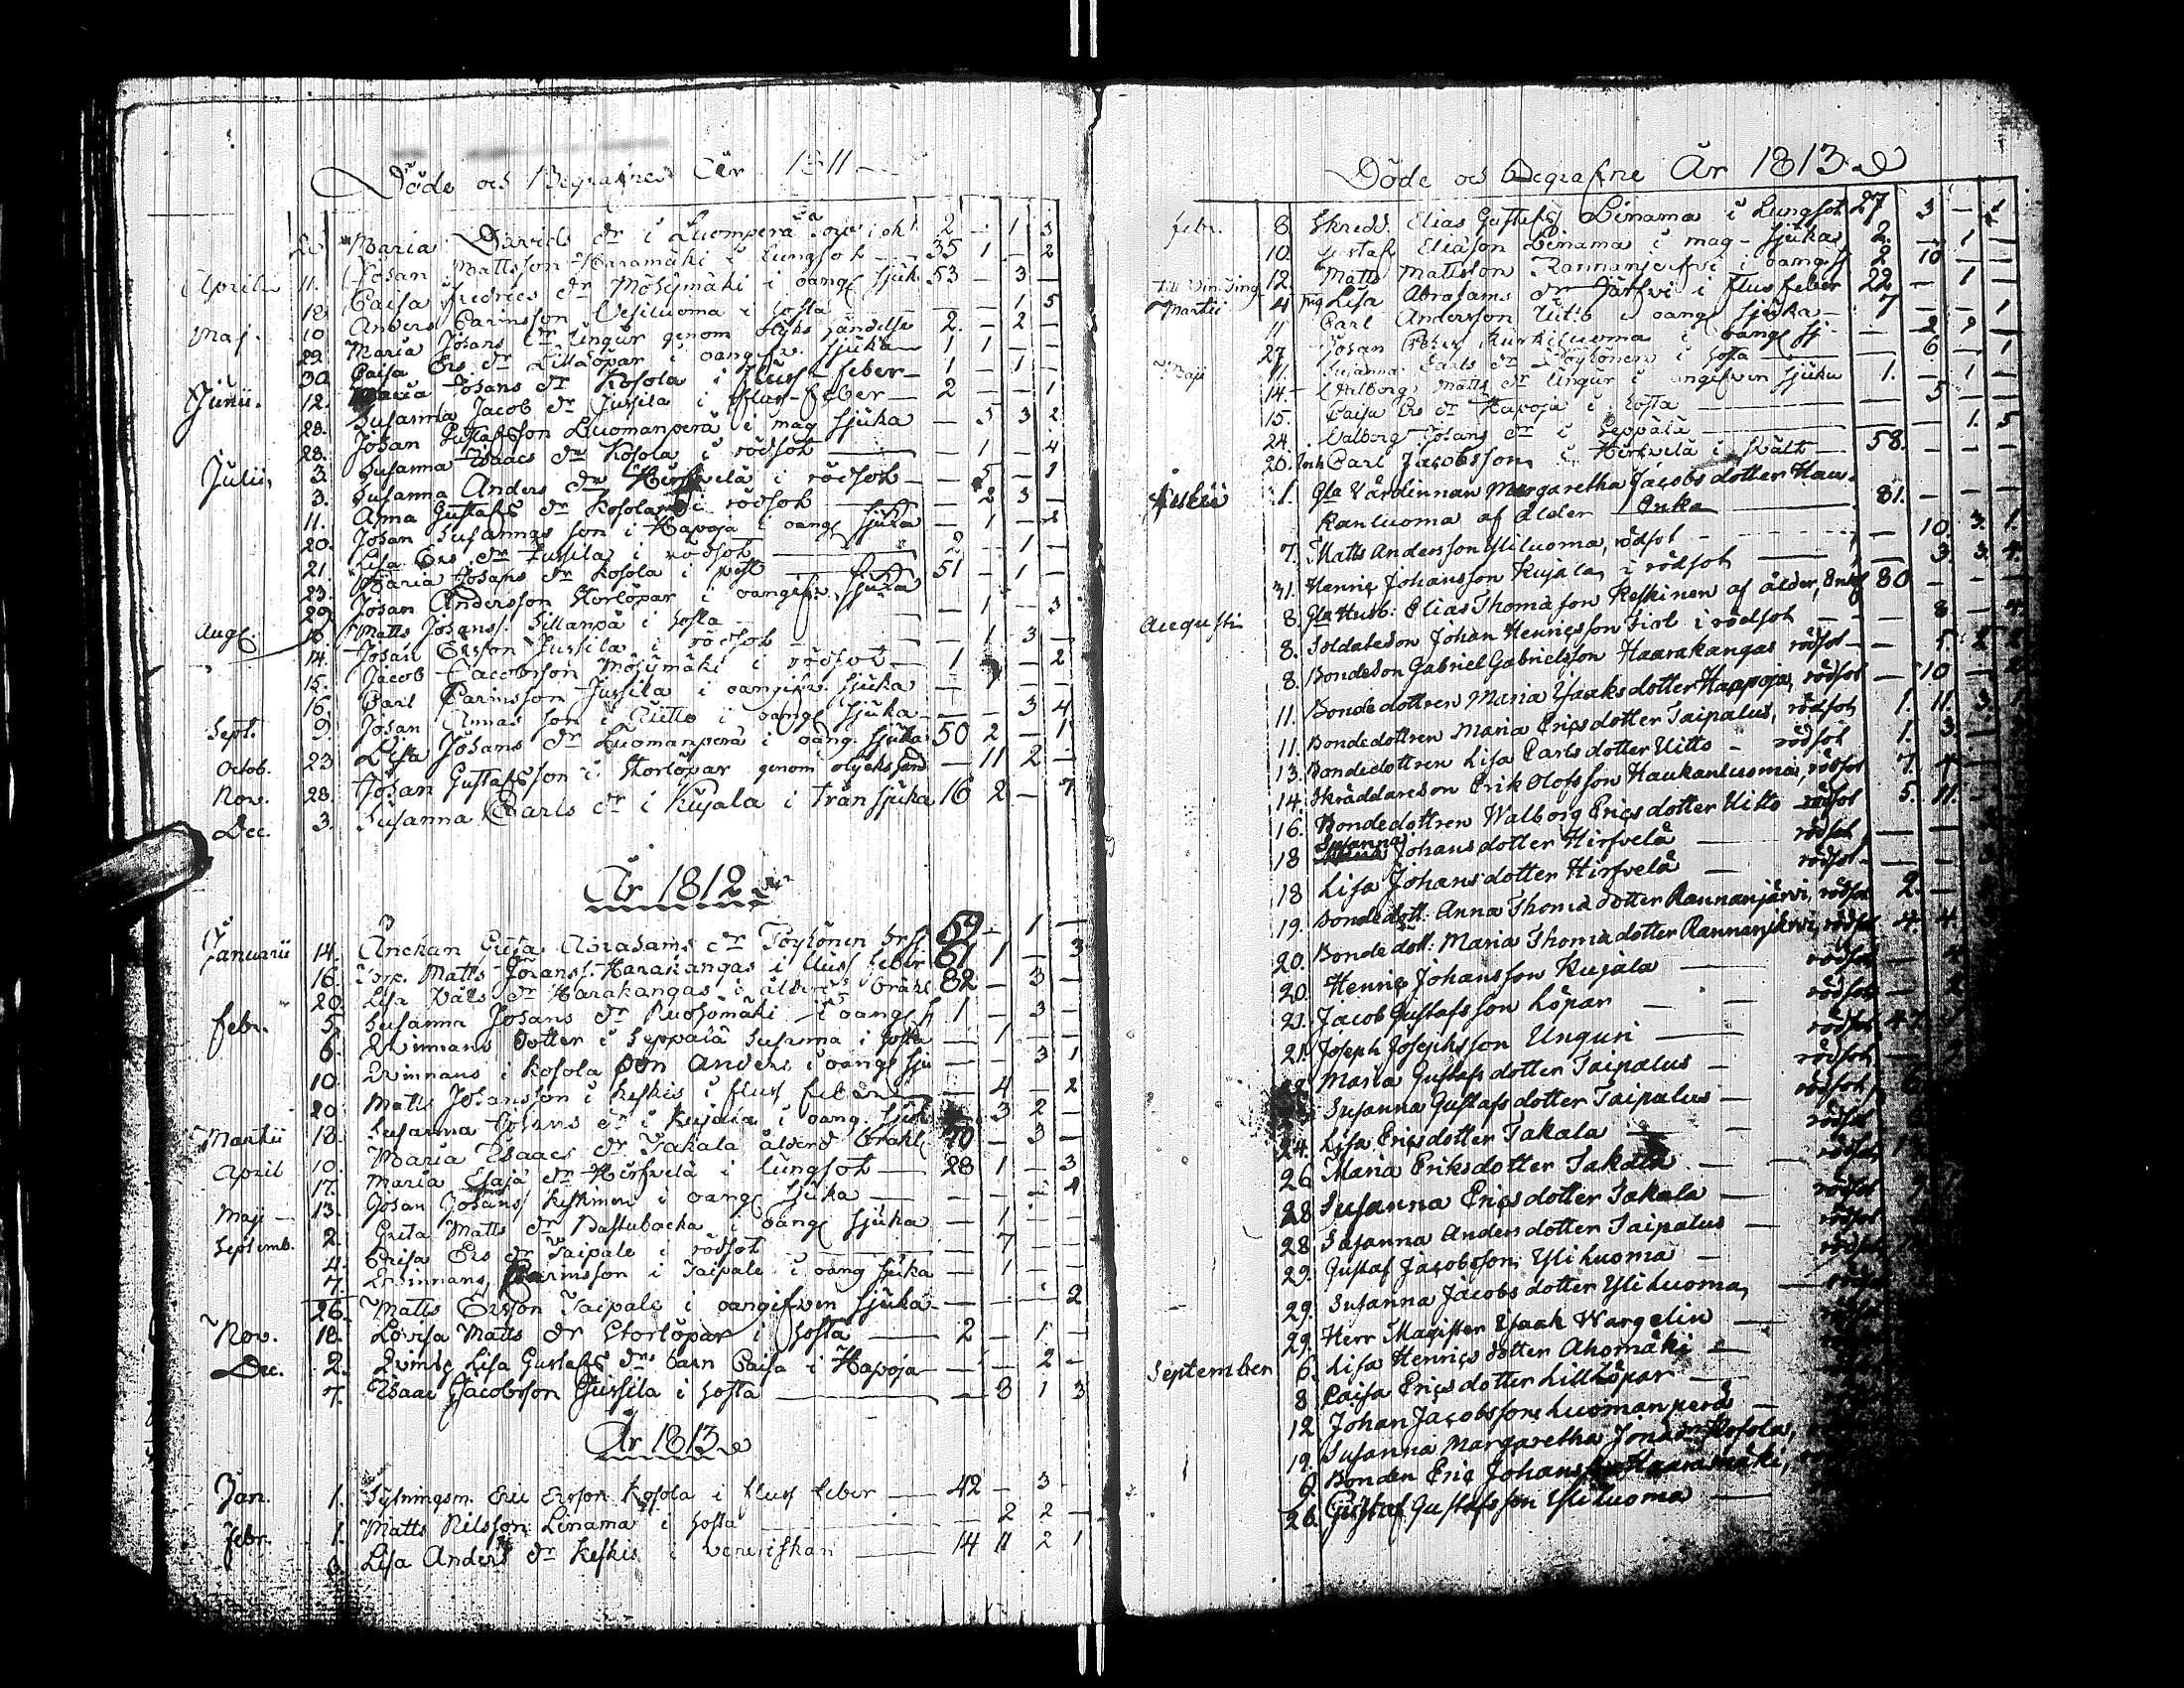 Döde och Begrafne År 1811
Maria Davids dr i Luomperä 2 - 1 3
Johan Mattsson Haramäki i lungsot 35 1 - 2
April 11. Caisa Fredrics dr Mösymäki i oangf sjuk 53 - 3 -
12. Anders Carinsson Vesiluoma i hosta - - 1 5
Maj. 10 Maria Johans dr Ungur genom olyks händelse 2. - 2 -
29. Caisa Ers dr Lilllöpar i oangifv. sjuka 1 1 - -
30. Johans dr Kosola i fluss-feber 1 - 1 -
Junii. 12. Susanna Jacob dr Jussila i fluss-feber 2 - - 1
28. Johan Gustafsson Luomanperä i mag sjuka - 3 3 2
28. Susanna Isaacs dr Kosola i rödsot - 1 - 4
Julii, 3. Susanna Anders dr Hirfvelä i rödsot - 5 - 1
3. Anna Gustafs dr Kosola i rödsot - 2 3 -
11. Johan Susannas son i Hapoja i oangf sjuka - 1 - 2
20. Lisa Ers dr Jussila i rödsot 2 - 1 -
21. Maria Johans dr Kosola i 51 - 1 -
23. Johan Andersson Storlöpar i oangifv. sjuka
29. Matts Johanss. Sillanpä i hosta - 1 - 3
Aug. 13 Johan Ersson Jussila i rödsot - 1 3 -
14. Jacob Jacobsson Mösymäki i rödsot 1 - - 2
15. Carl Carinsson Jussila i oangifv. sjuka
16. Johan Annas son i Uitto i oangf sjuka - - 3 4
Sept. 9 Lisa Johans dr Luomanperä i oang. sjuka 50 2 - 1
Octob. 23 Johan Gustafsson i Storlöpar genom olyckshänd - 11 2 -
Nov. 28. Susanna Carls dr i Kujala i trånsjuka 16 2 - 7
Dec. 3.
År 1812
Januarii 14. Enckan Greta Abrahams dr Töyhönen 59 - 1 -
16. Matts Johanss. Harakangas i fluss feber 61 1 - 3
20. Lisa dr Harakangas i ålderd bräkl 82 - 3 -
Febr. 5. Susanna Johans dr Ruohomäki i oangf sj 1 - 3 -
6. Qvinnans dotter i Seppälä Susanna i hosta - 1 - -
10. Qvinnans i Kosola son Anders i oangf sju - - 3 1
20. Matts Johansson i Keskis i fluss feber - 4 - 2
Martii 18. Susanna Johans dr i Kujala i oang. sjuk - 3 2 -
April 10. Maria Isaacs dr Takala ålderd bräkl. 70 - 3 -
17. Maria Esajä dr Hirfvelä i lungsot 28 1 - 3
Maji 13. Johan Johans Keskinen i oangf sjuka - - - 2
Septemb. 2. Greta Matts dr Bastubacka i oangf sjuka - 1 - -
4. Ers dr Taipale i rödsot - 7 - -
7. Qvinnans Carinsson i Taipale i oang sjuka - 1 - -
26. Matts Ersson Taipale i oangifven sjuka - - - 2
Nov. 18. Lovisa Matts dr Storlöpar i hosta 2 - 1 -
Dec. 2. Lisa Gustafs drs barn Caisa i Hapoja - - 2 -
7. Isaac Jacobsson Jussila i hosta - 3 1 3
År 1813
Jan. 1. Sytningsm. Eric Ersson Kosola i fluss feber 42 - 3 -
Febr. 1. Matts Nilsson Linama i hosta - 2 2 -
6. Lisa Anders dr Keskis i veneriskan 14 11 2 1
Döde och Begrafne År 1813
Febr. 8. Skredd. Elias Gustafs Linama i Lungsot 27 3 - 1
10. Gustaf Eliäson Linama i mag-sjuka 2. - 1 -
12. Matts Mattsson Rannanjerfvi i oangf 2 10 - -
Martii 4 Lisa Abrahams dr Järfvi i flus feber 22 - 1 -
11 Carl Andersson Uitto i oangf sjuka 7 - - 1
27 Johan Kurkiluoma i oangf sj - 2 2 -
Maji 11. Susanna Carls dr Töyhönen i hosta - 6 - 1
14. Walborg Matts dr Ungur i oangifven sjuka 1. - 1 -
15. Caisa Ers dr Hapoja i hosta - 5 - -
24. Walborg Johans dr i Seppälä - - 1. 5
20. Inh Carl Jacobsson i Hirfvelä i 58. - - -
1. Gla Värdinnan Margaretha Jacobs dotter Hau-
kanluoma af ålder Enka 81. - - -
7. Matts Andersson Yliluoma, rödsot - 10. 3. 1.
31. Henric Johansson Kujala, i rödsot - 3. 3. 4.
Augusti 8. Gla Husb: Elias Thomä son Keskinen af ålder, Enkl 80 - - -
8. Soldateson Johan Henricsson i rödsot - 8 - 4.
8. Bondeson Gabriel Gabrielsson Haarakangas rödsot - 5. 2
11. Bondedottren Maria Ysaaks dotter Happoja, rödsot - 10 -
11. Bondedottren Maria Erics dotter Taipalus, rödsot 1. 11. 3.
13. Bondedottren Lisa Carls dotter Uitto - rödsot 1. 3.
14. Skräddareson Erik Olofsson Haukanluoma, rödsot 7. 7.
16. Bondedottren Walborg Erics dotter Uitto rödsot 5. 11.
18 Susanna Johans dotter Hirfvelä rödsot
18 Lisa Johans dotter Hirfvelä rödsot
19. Bondedott: Anna Thomä dotter Rannanjärvi, rödsot 2.
20. Bondedott: Maria Thomä dotter Rannanjärvi, rödsot 4. 4.
20. Henric Johansson Kujala rödsot
21. Jacob Gustafsson Löpar rödsot
21. Joseph Josephsson Unguri rödsot 47.
Maria Gustafs dotter Taipalus rödsot
Susanna Gustafs dotter Taipalus rödsot 6
24. Lisa Erics dotter Takala rödsot
26 Maria Eriksdotter Takala rödsot
28 Susanna Erics dotter Takala rödsot
28 Susanna Anders dotter Taipalus rödsot
29. Gustaf Jacobsson Yliluoma rödsot
29. Susanna Jacobs dotter Yliluoma, rödsot
29. Herr Magister Ysaak Wargelin
September 6. Lisa Henrics dotter Ahomäki
8 Caisa Erics dotter Lilllöpar
12 Johan Jacobsson Luomanperä
19. Susanna Margaretha Kosola,
9. Bonden Eric Johansson Haaramäki,
26. Gustaf Gustafsson Yliluoma